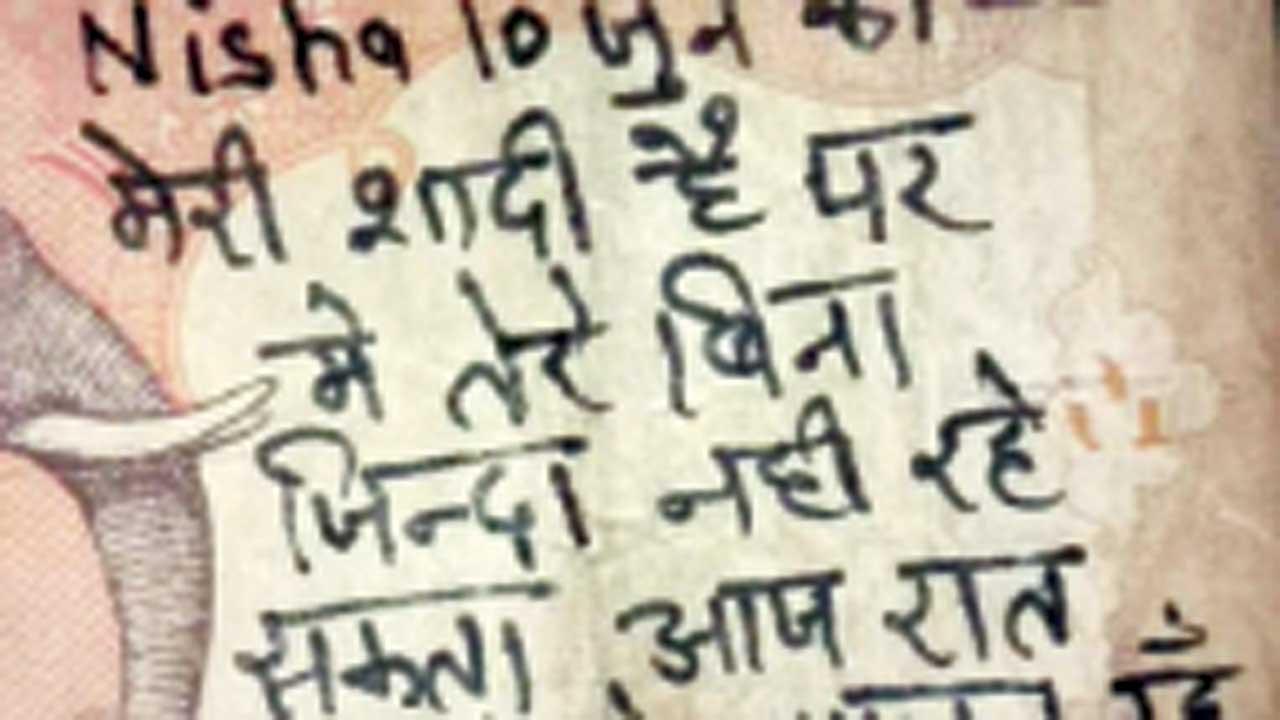 Nisha 10 जुन को
मेरी शादी है पर
मे तेरे बिना
जिन्दा नही रहे
सकता आज रात